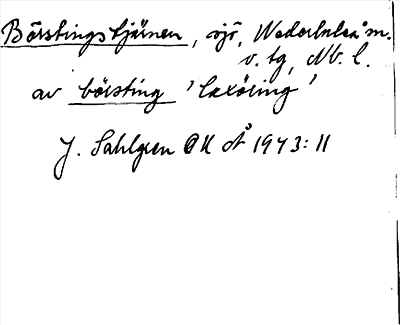 Börstingstjärnen, sjö, Nederluleå sn.
v. tg, Nb. l.
av börsting 'laxöring'
J. Sahlgren OUÅ 1943: 11